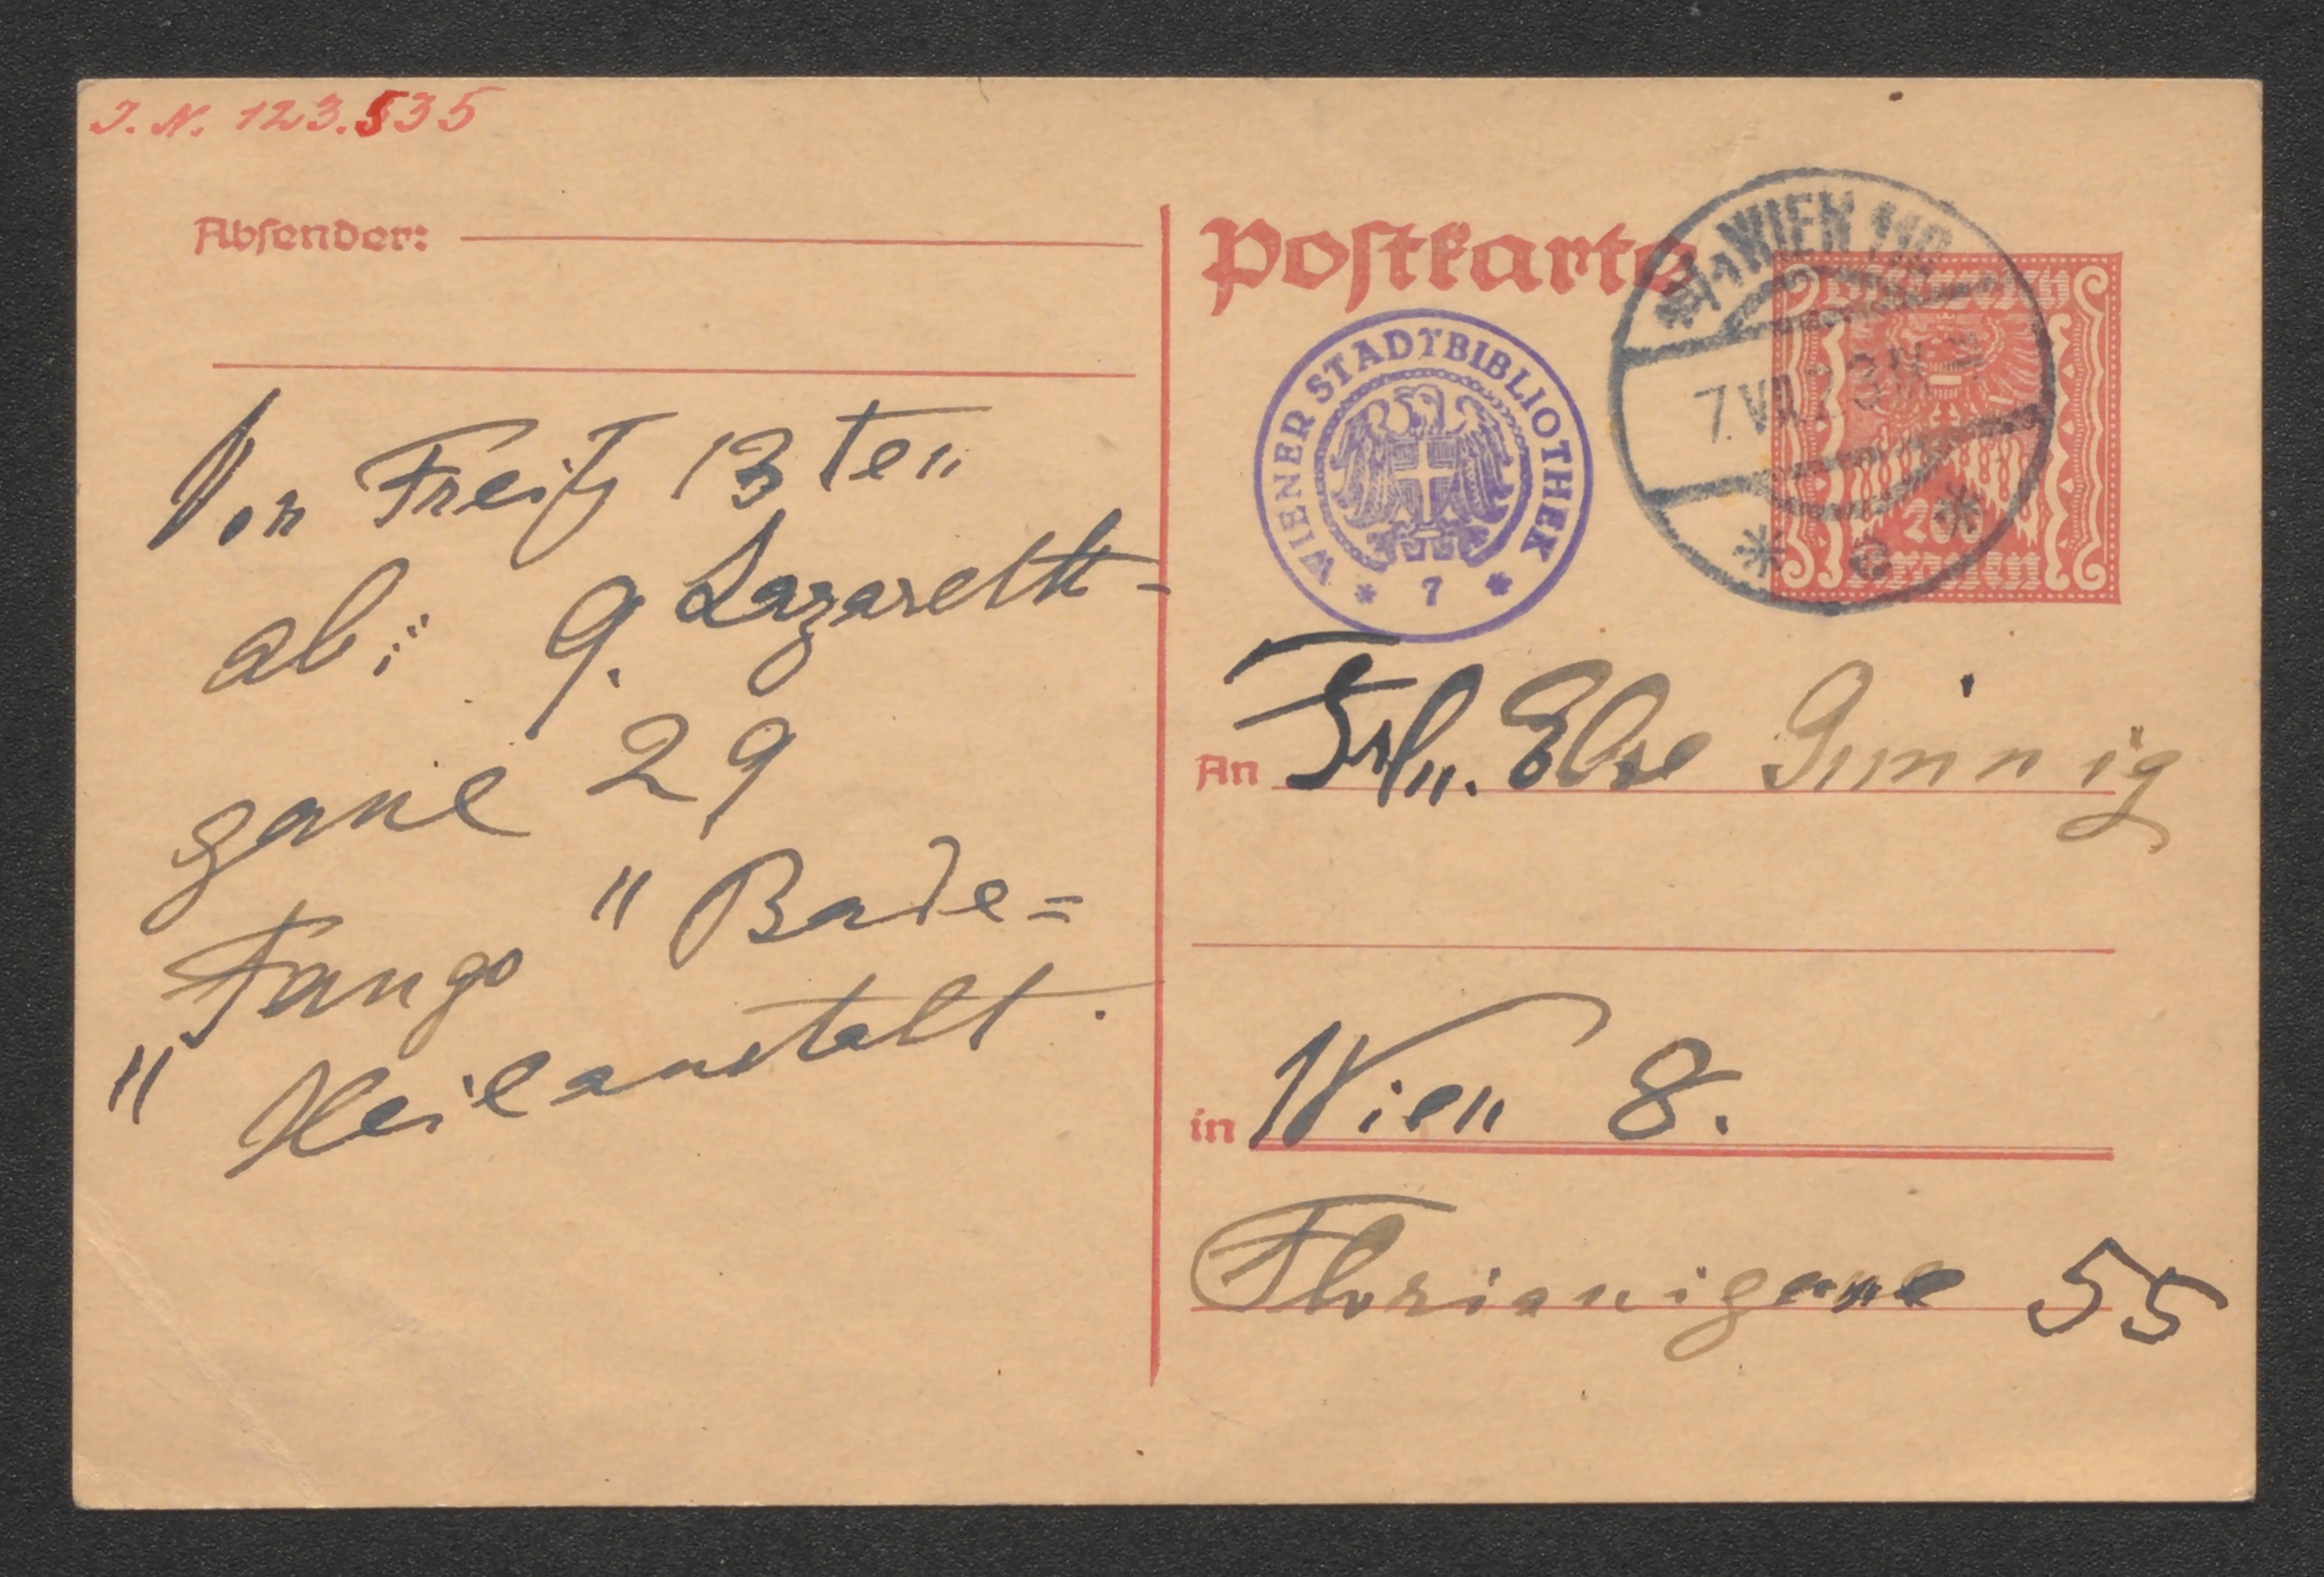 J. N. 123.535
Absender:
Von Freitg 13 ten
ab: 9. Lazareth-
gasse 29
Fango " Bade=
" Heilanstalt.
Postkarte
WIEN
7.VII.23
200
WIENER STADTBIBLIOTHEK
* 7 *
An Frln. Else
in Wien 8.
Florianigasse 55